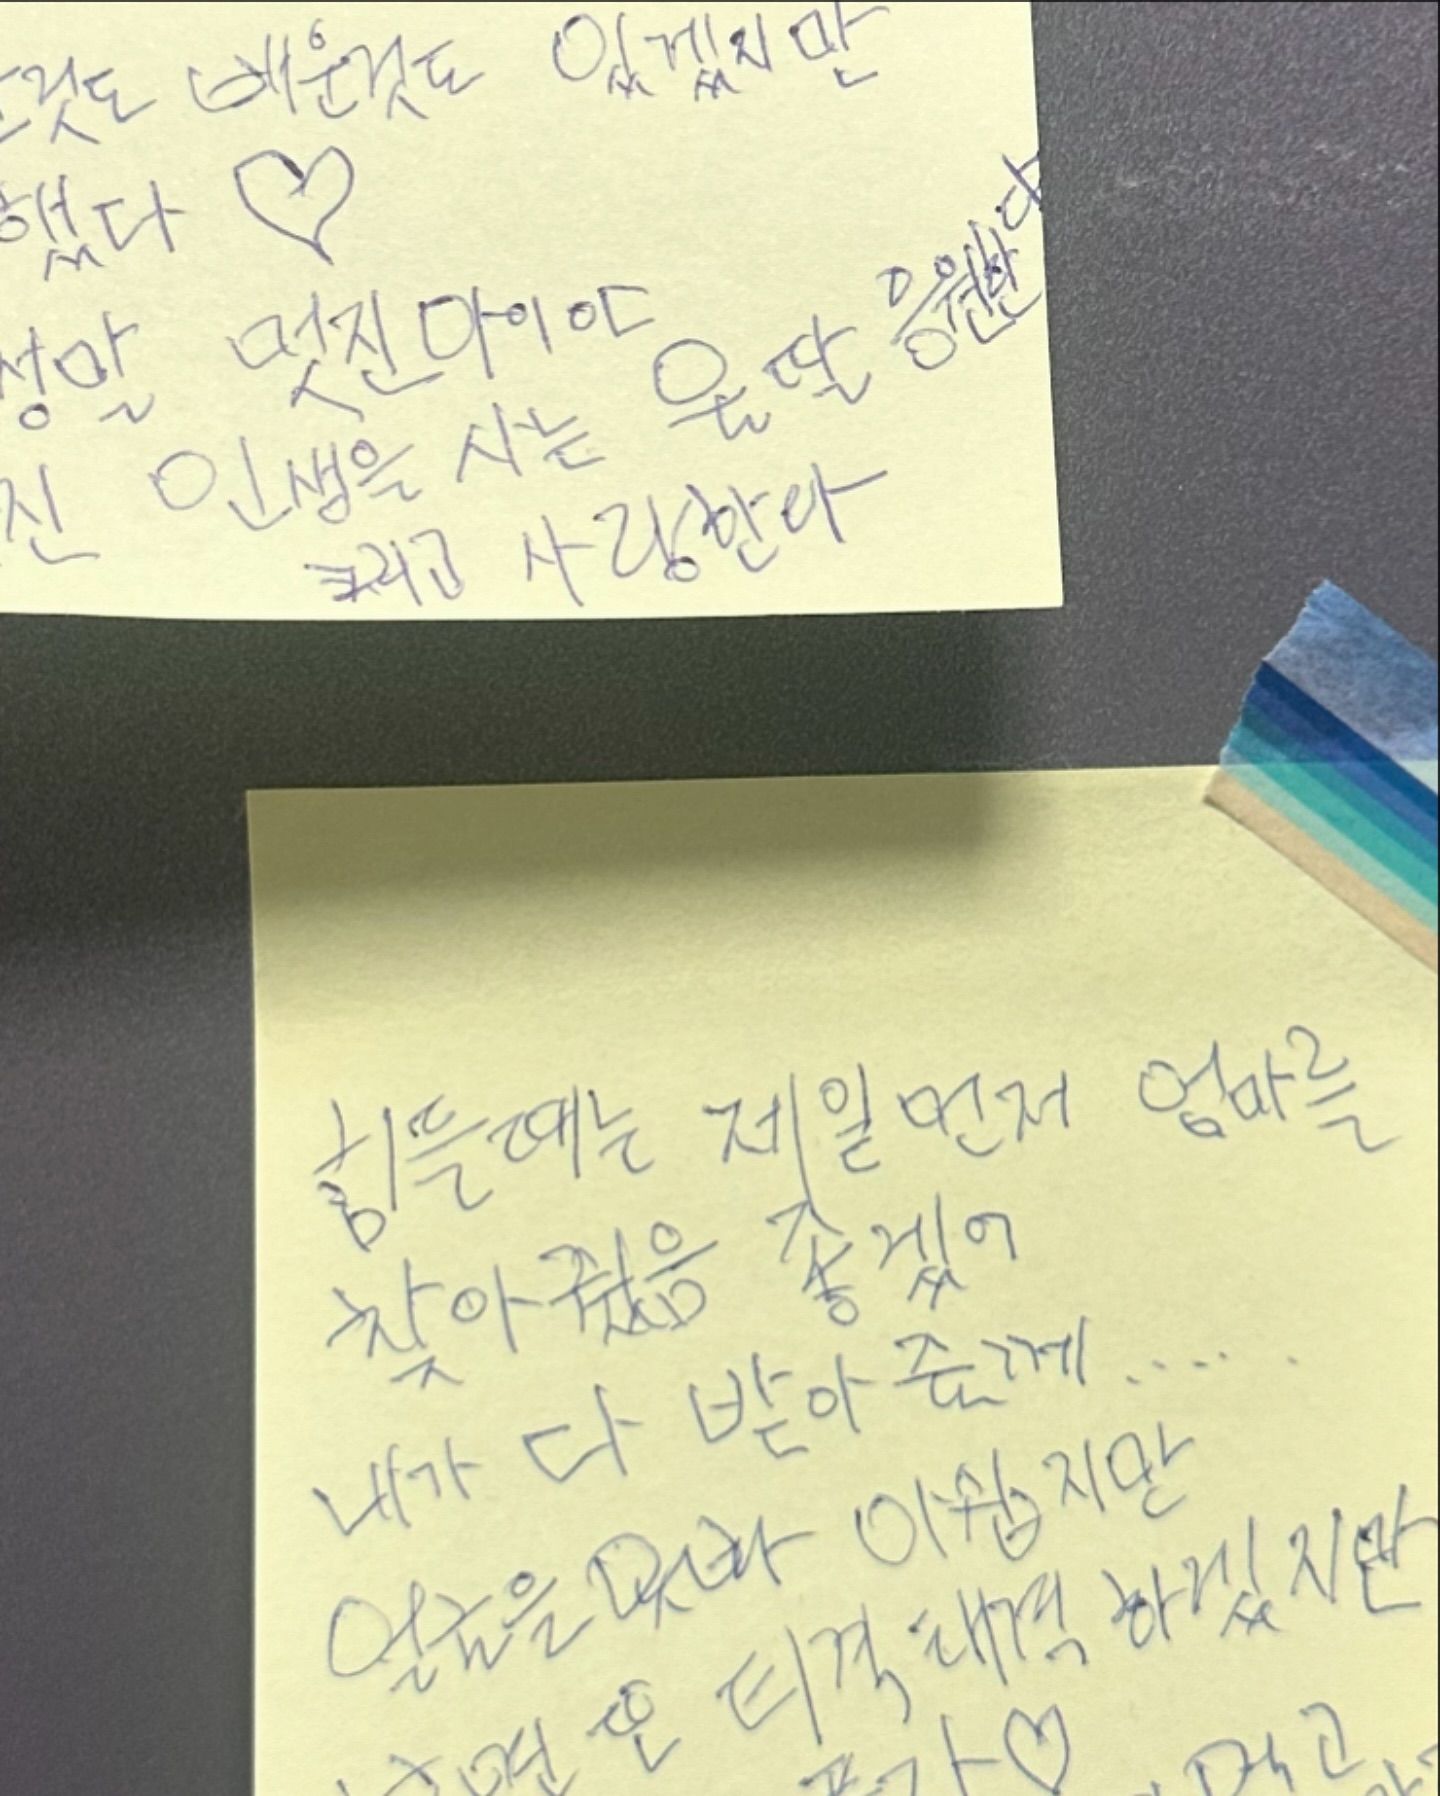 배운것도 있겠지만
했다 ♡
정말 멋진아이야
인생을 사는 울딸 응원한다
그리고 사랑한다
힘들때는 제일먼저 엄마를
찾아줬음 좋겠어
내가 다 받아 줄게.....
얼굴을 못봐 아쉽지만
또 티격태격 하겠지만
♡ 먹고